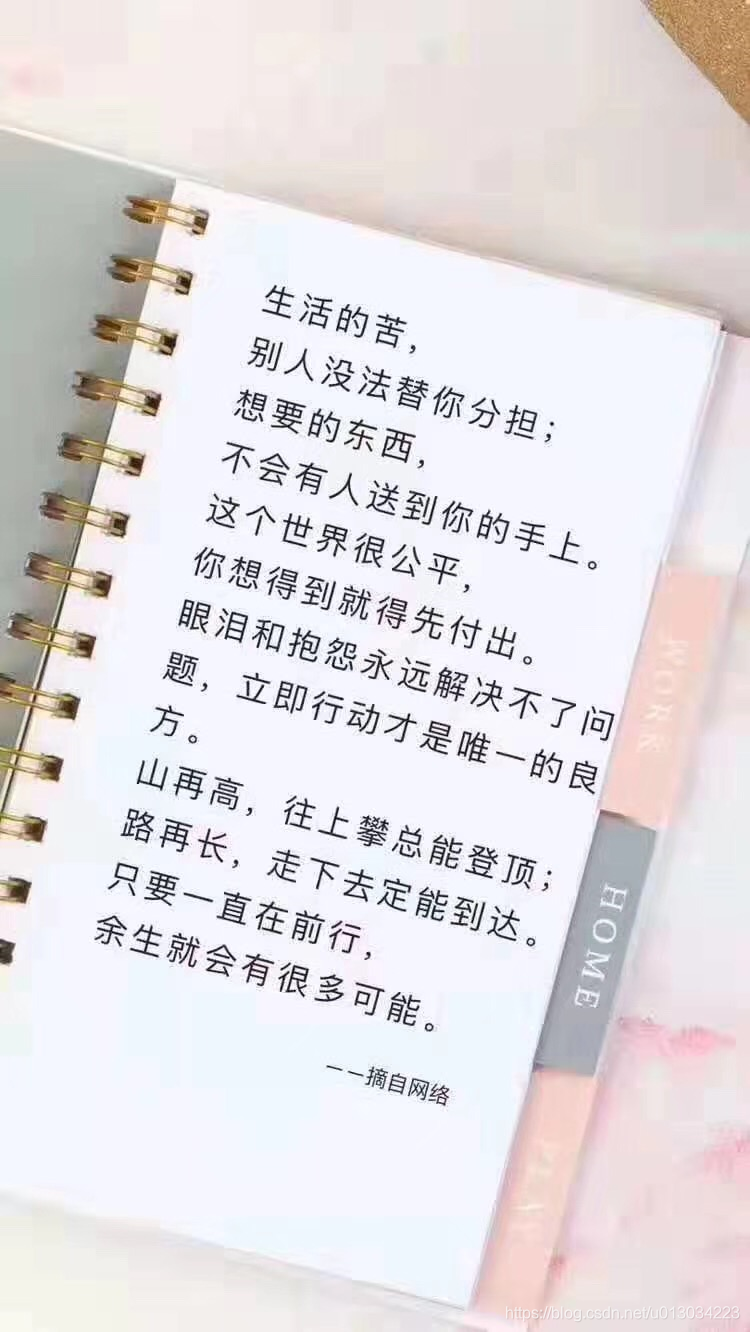 生活的苦，
别人没法替你分担；
想要的东西，
不会有人送到你的手上。
这个世界很公平，
你想得到就得先付出。
眼泪和抱怨永远解决不了问
题，立即行动才是唯一的良
方。
山再高，往上攀总能登顶；
路再长，走下去定能到达。
只要一直在前行，
余生就会有很多可能。
——摘自网络
WORK
HOME
PLAY
https://blog.csdn.net/u013034223